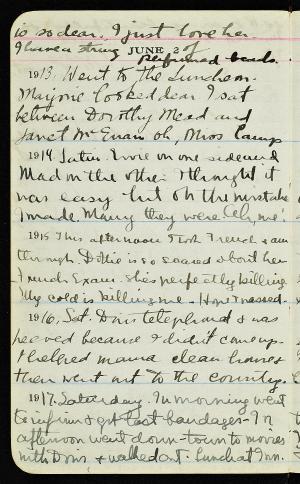 is so dear. I just love her.
I have a string of
JUNE 2
perfumed beads.
1913. Went to the Luncheon.
Marjorie looked dear I sat
between Dorothy Mead and
Janet Mc Ewan oh, Miss Camp
1914 Latin. I was on one side and
Mad on the other I thought it
was easy but oh the mistakes
I made. Many they were Oh, me!
1915 This afternoon I took French & am
through Dottie is so scared about her
French Exam. She's perfectly killing
My cold is killing me. How I nassed.
1916. Sat. Doris telephoned & was
peeved because I didn't come up.
I helped mama clean house &
then went out to the country.
1917. Saturday. In morning went
to infirm & got last bandages. In
afternoon went down-town to movies
with Doris & walked out. Lunch at Inn.